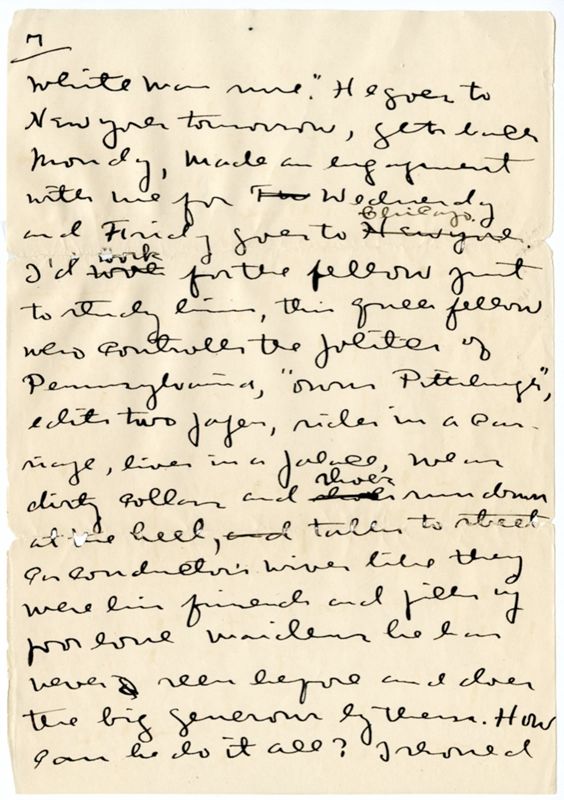 7
white man nine." He goes to
New York tomorrow, gets back
Monday, made an engagement
with me for Thu Wednesday
and Friday goes to New York. Chicago.
I'd work for the fellow just
to study him, this queer fellow
who controlls the politics of
Pennsylvania, "owns Pittsburgh",
edits two papers, rides in a car-
riage, lives in a palace, wears
dirty collars and shoes run down
at the heel, and talks to street
car conductors wives like they
were his friends and jollies up
poor lone maidens he has
never seen before and does
the big generous by them. How
can he do it all? I showed